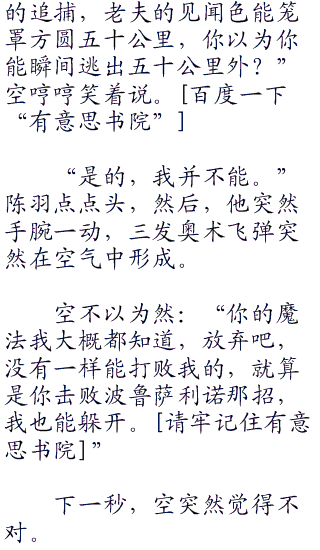 的追捕，老夫的见闻色能笼
罩方圆五十公里，你以为你
能瞬间逃出五十公里外？”
空哼哼笑着说。[百度一下
“有意思书院”]
“是的，我并不能。”
陈羽点点头，然后，他突然
手腕一动，三发奥术飞弹突
然在空气中形成。
空不以为然：“你的魔
法我大概都知道，放弃吧，
没有一样能打败我的，就算
是你击败波鲁萨利诺那招，
我也能躲开。[请牢记住有意
思书院]”
下一秒，空突然觉得不
对。